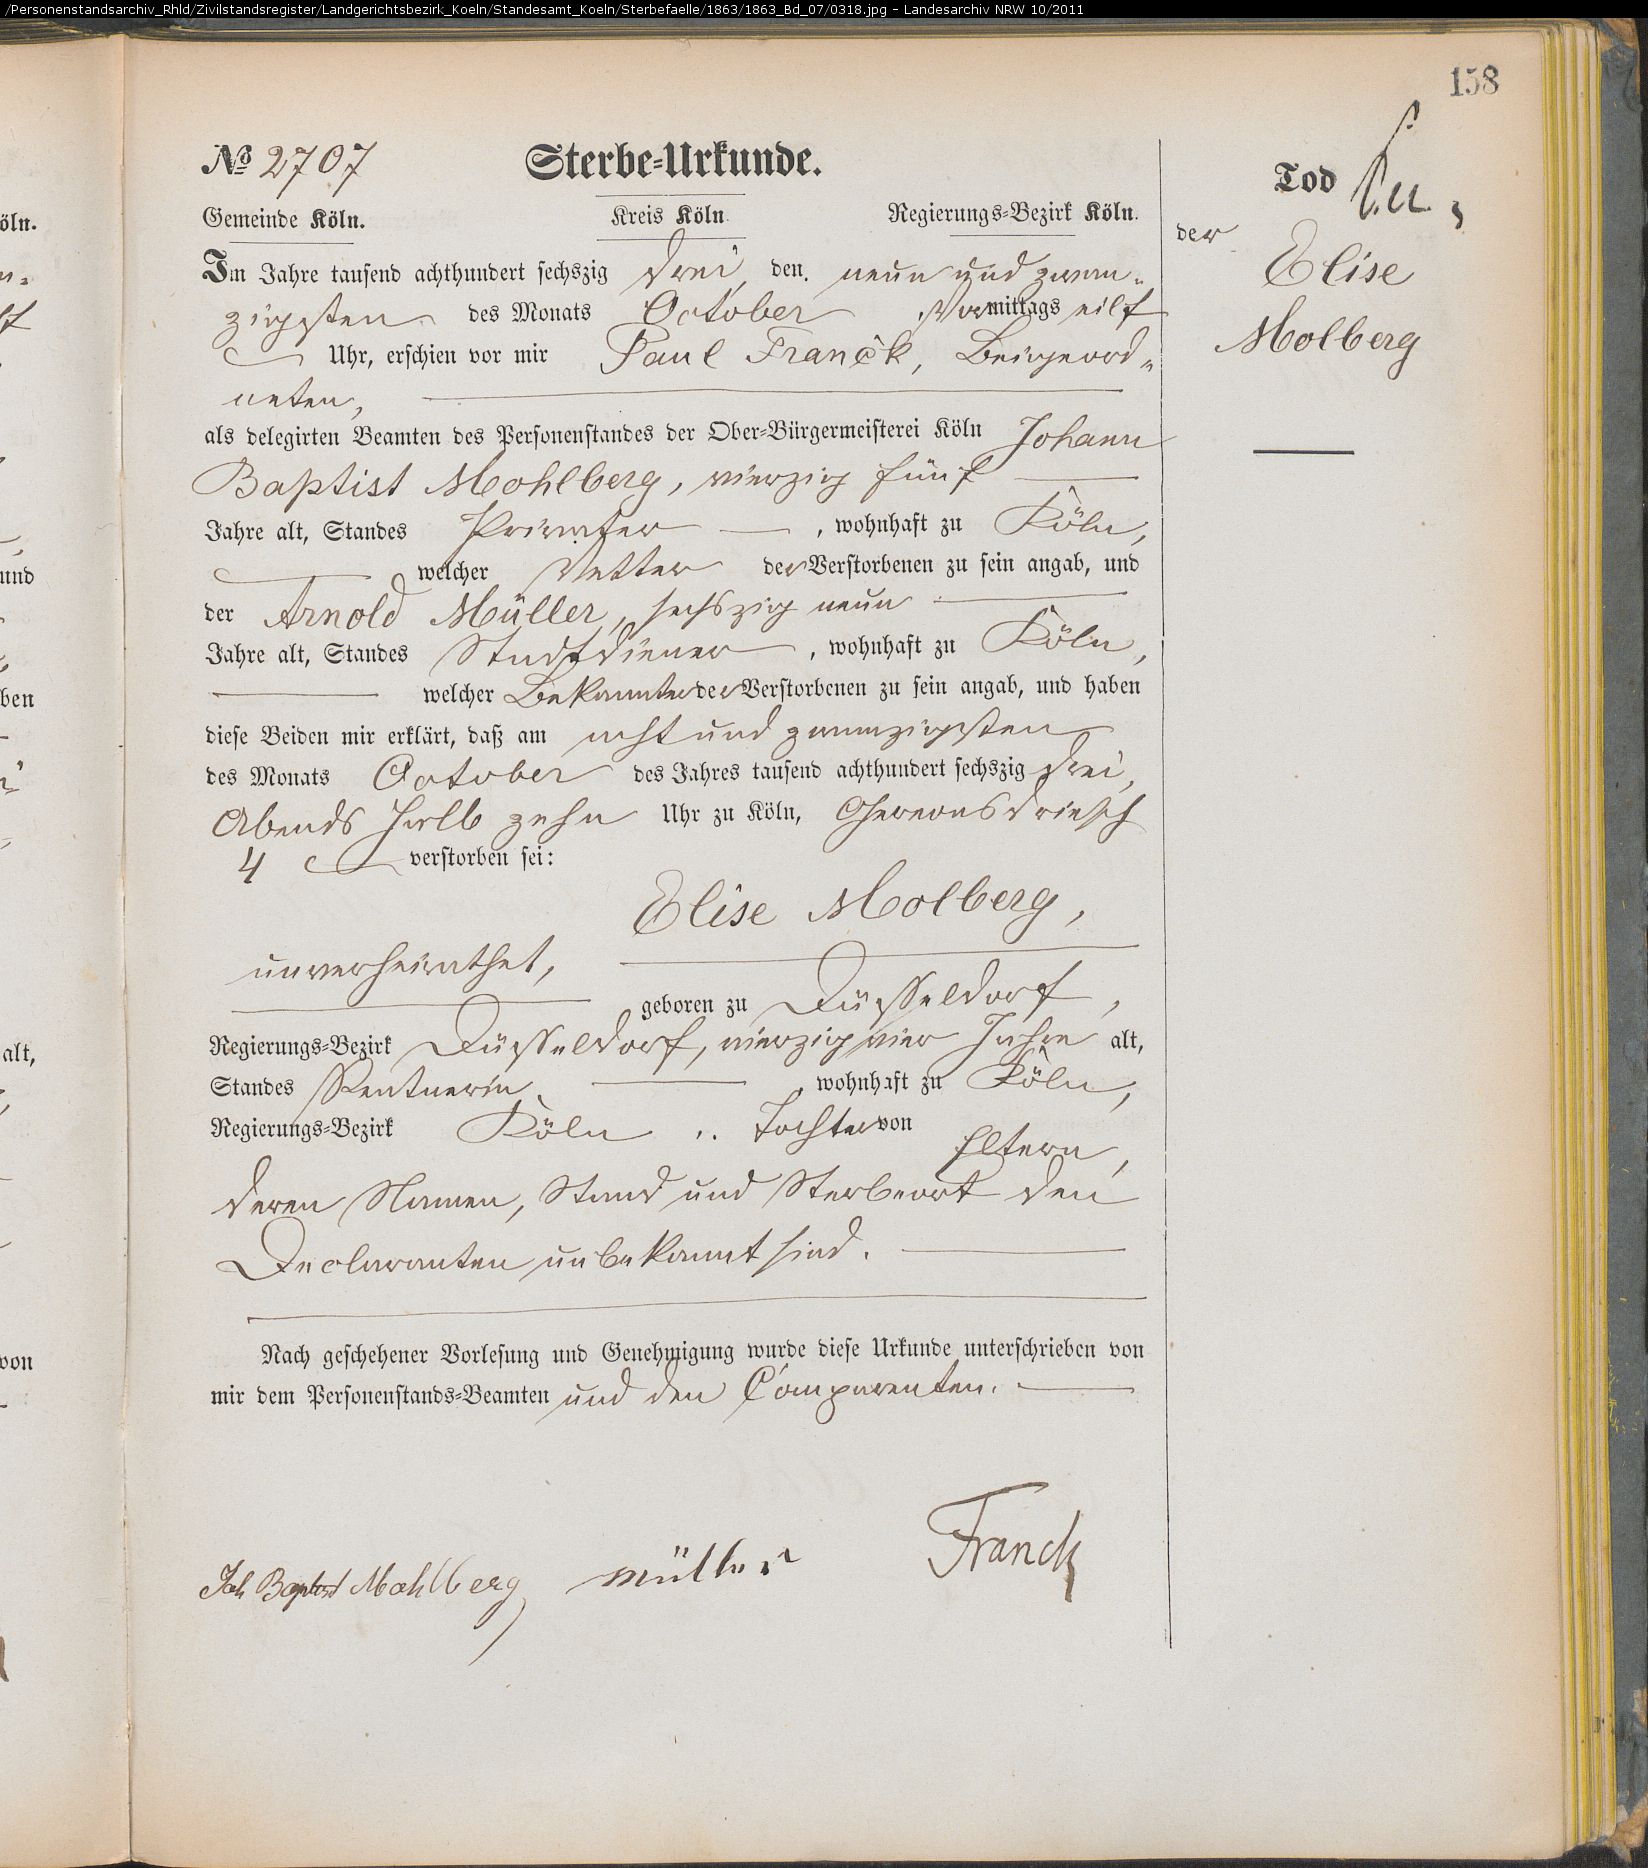 /Personenstandsarchiv_Rhld/Zivilstandsregister/Landgerichtsbezirk_Koeln/Standesamt_Koeln/Sterbefaelle/1863/1863_Bd_07/0318.jpg - Landesarchiv NRW 10/2011
158
№ 2707 Sterbe-Urkunde.
Gemeinde Köln. Kreis Köln. Regierungs-Bezirk Köln.
Im Jahre tausend achthundert sechszig drei, den neun und zwan-
zigsten des Monats October Vormittags eilf
Uhr, erschien vor mir Paul Franck, Beigeord-
neten,
als delegirten Beamten des Personenstandes der Ober-Bürgermeisterei Köln Johann
Baptist Mohlberg, vierzig fünf
Jahre alt, Standes Privater, wohnhaft zu Köln,
welcher Vetter der Verstorbenen zu sein angab, und
der Arnold Müller, sechszig neun
Jahre alt, Standes Stadtdiener, wohnhaft zu Köln,
welcher Bekannter der Verstorbenen zu sein angab, und haben
diese Beiden mir erklärt, daß am acht und zwanzigsten
des Monats October des Jahres tausend achthundert sechszig drei,
Abends halb zehn Uhr zu Köln, Gereonsdriesch
4 verstorben sei:
Elise Molberg,
unverheirathet,
geboren zu Düsseldorf,
Regierungs-Bezirk Düsseldorf, vierzig vier Jahre alt,
Standes Rentnerin, wohnhaft zu Köln,
Regierungs-Bezirk Köln, Tochter von Eltern,
deren Namen, Stand und Sterbeort den
Declaranten unbekannt sind.
Nach geschehener Vorlesung und Genehmigung wurde diese Urkunde unterschrieben von
mir dem Personenstands-Beamten und den Comparenten.
Joh Baptist Mohlberg Müller Franck
Tod
der
Elise
Molberg
öln.
und
ben
alt,
von